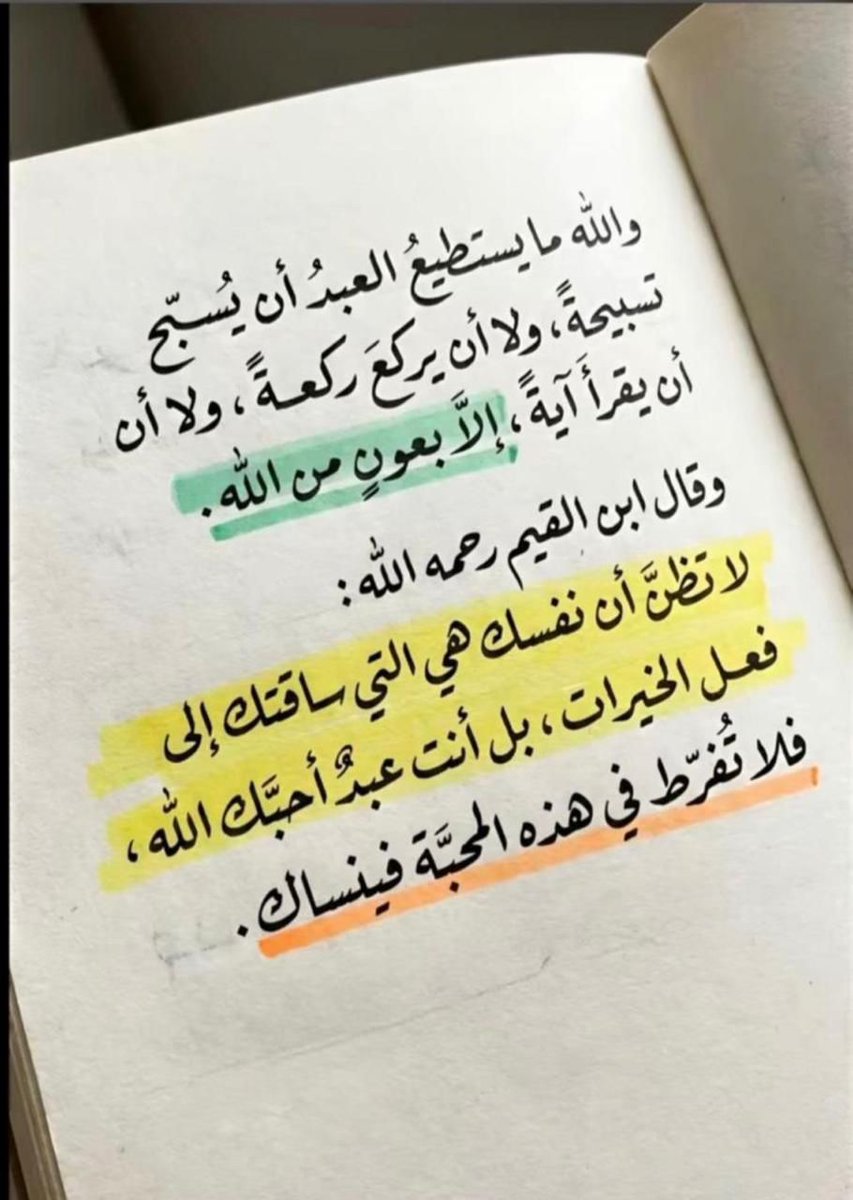 والله ما يستطيعُ العبدُ أن يُسبّح
تسبيحةً، ولا أن يركعَ ركعةً، ولا أن
أن يقرأَ آيةً، إلاَّ بعونٍ من الله.
وقال ابن القيم رحمه الله:
لا تظنَّ أن نفسك هي التي ساقتك إلى
فعل الخيرات، بل أنت عبدٌ أحبَّك الله،
فلا تُفرّط في هذه المحبَّة فينساك.